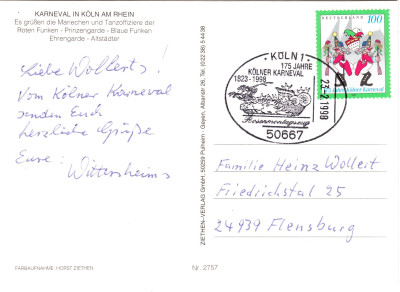 KARNEVAL IN KÖLN AM RHEIN
Es grüßen die Mariechen und Tanzoffiziere der
Roten Funken - Prinzengarde - Blaue Funken
Ehrengarde - Altstädter
Liebe Wollerts!
Vom Kölner Karneval
senden Euch
herzliche Grüße
Eure:
Wittersheims
FARBAUFNAHME: HORST ZIETHEN
Nr. 2757
ZIETHEN-VERLAG GmbH, 50259 Pulheim
KÖLN 1
175 JAHRE
KÖLNER KARNEVAL
1823-1998
Rosenmontagszug
50667
23-2.1998
DEUTSCHLAND
100
Kölner Karneval
Familie Heinz Wollert
Friedrichstal 25
24939 Flensburg